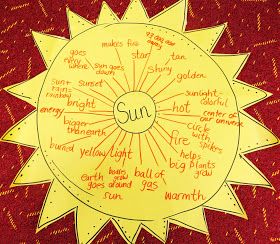 makes fire
93,000,000
away
goes
every
where
sun goes
down
star
tan
shiny
golden
sun+
rain=
rainbow
sunset
sunlight-
colorful
bright
Sun
hot
energy
center of
our universe
bigger
than earth
circle
with
spikes
fire
burned
yellow
light
helps
plants
grow
big
earth
goes around
sun
bodies
grow
ball of
gas
warmth